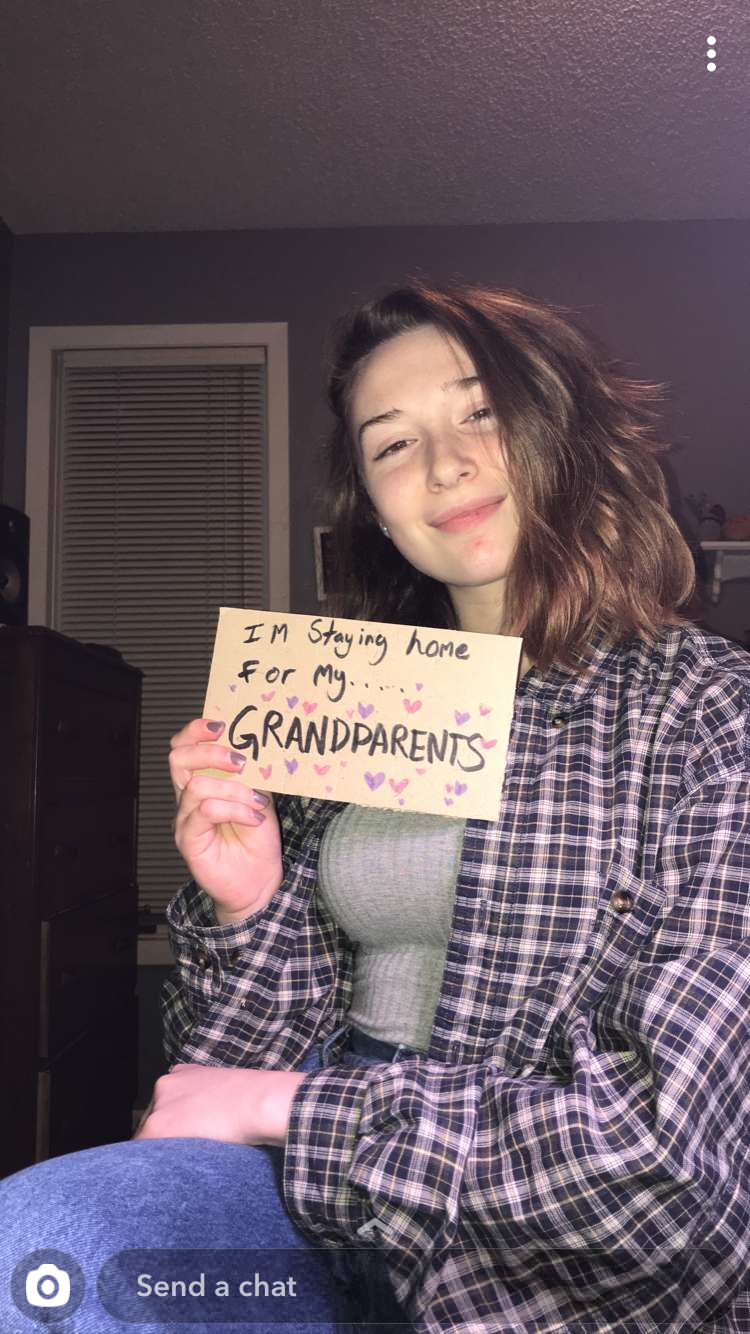 I M Staying home
For My.....
GRANDPARENTS
Send a chat